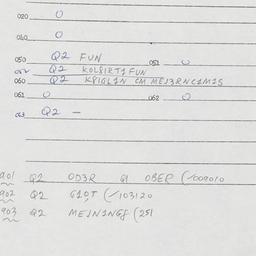 020 0
040 0
050 Q2 FUN 051 0
052 Q2 KOL8IRT1 FUN
060 Q2 K8IGL1N CM MEJ3RNC1M1S
061 0 062 0
063 Q2 -
901 Q2 OD3R Q1 OBER (/009010
902 Q2 G1OT (/103120
903 Q2 MEJN1NG8 (251